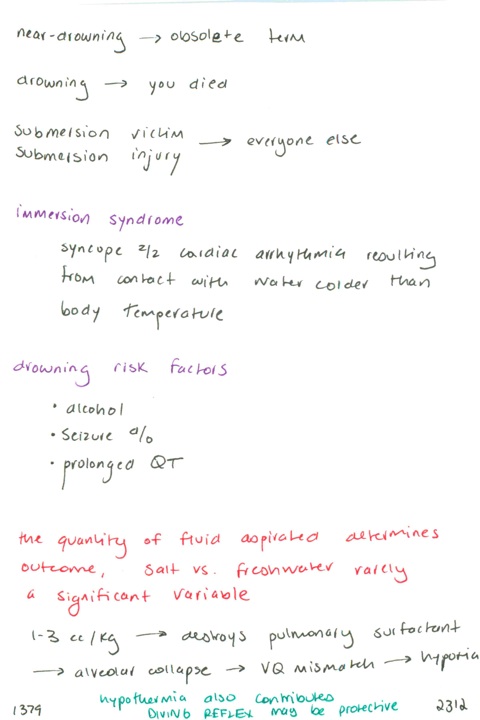 near-drowning → obsolete term
drowning → you died
submersion victim
submersion injury → everyone else
immersion syndrome
syncope 2/2 cardiac arrhythmia resulting
from contact with water colder than
body temperature
drowning risk factors
• alcohol
• seizure d/o
• prolonged QT
the quantity of fluid aspirated determines
outcome, salt vs. freshwater rarely
a significant variable
1-3 cc/kg → destroys pulmonary surfactant
→ alveolar collapse → VQ mismatch → hypoxia
hypothermia also contributes
1379 DIVING REFLEX may be protective 2312